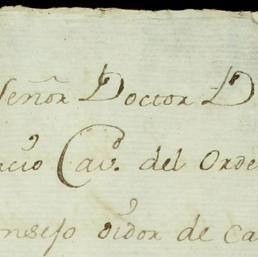 Señor Doctor D
acio Cavº. del Orde
onsejo oidor de Ca